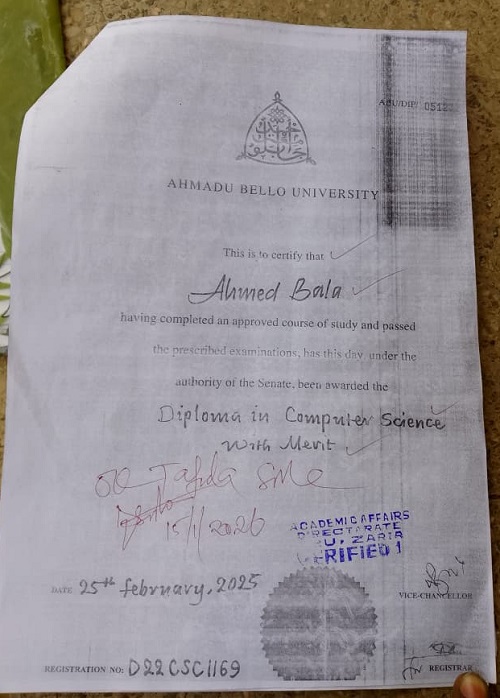 ABU/DIP/ 0512
AHMADU BELLO UNIVERSITY
This is to certify that
Ahmed Bala
having completed an approved course of study and passed
the prescribed examinations, has this day, under the
authority of the Senate, been awarded the
Diploma in Computer Science
With Merit
Tafida
15/1/2026
ACADEMIC AFFAIRS
DIRECTORATE
U, ZARIA
VERIFIED 1
DATE 25th february, 2025
VICE-CHANCELLOR
REGISTRATION NO: D22CSC1169
REGISTRAR